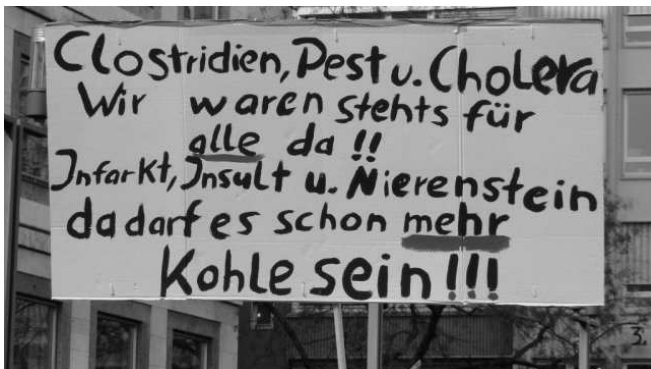 Clostridien, Pest u. Cholera
Wir waren stehts für
alle da !!
Infarkt, Insult u. Nierenstein
da darf es schon mehr
Kohle sein !!!
3.